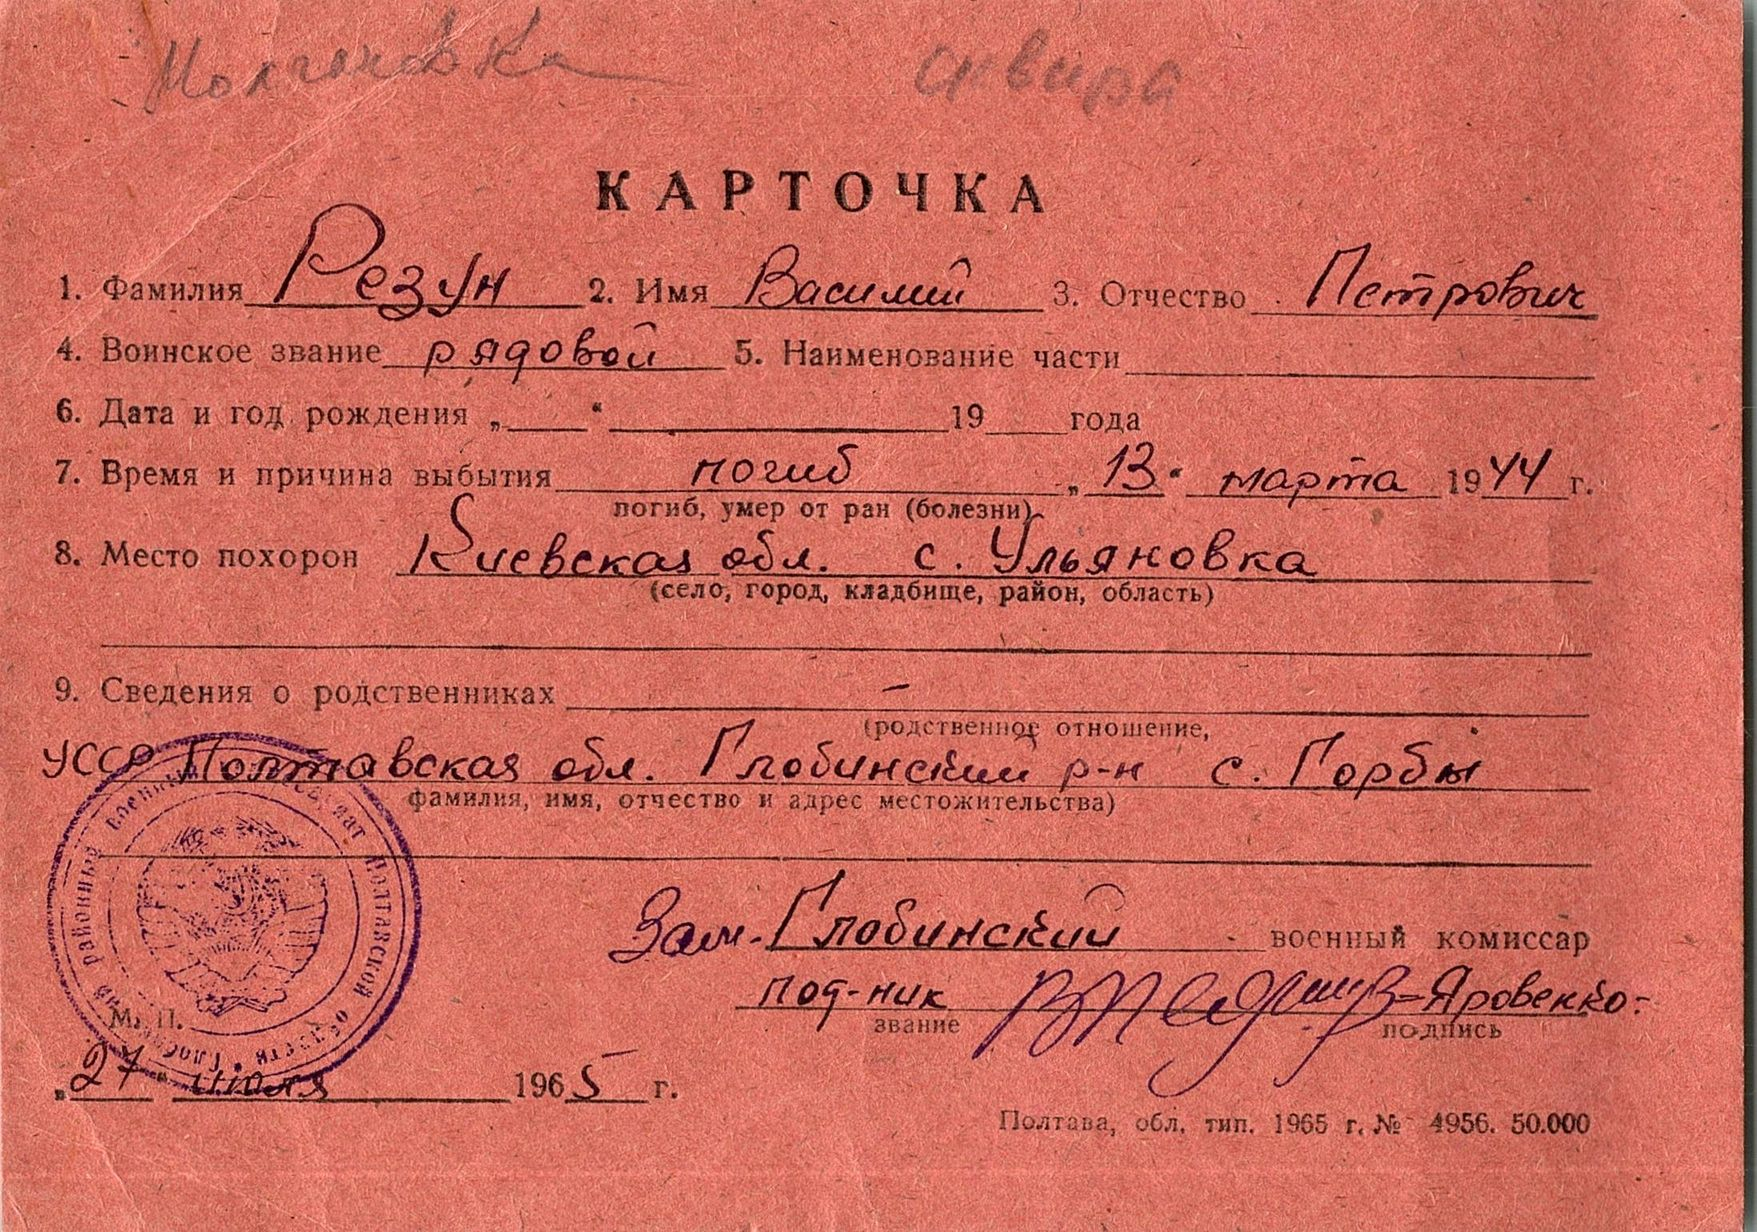 сквира
КАРТОЧКА
1. Фамилия Резун 2. Имя Василий 3. Отчество Петрович
4. Воинское звание рядовой 5. Наименование части
6. Дата и год рождения „ “ 19 года
7. Время и причина выбытия погиб „13“ марта 1944 г.
погиб, умер от ран (болезни)
8. Место похорон Киевская обл. с. Ульяновка
(село, город, кладбище, район, область)
9. Сведения о родственниках –
(родственное отношение,
УССР Полтавская обл. Глобинский р-н с. Горбы
фамилия, имя, отчество и адрес местожительства)
районный военный комиссариат Полтавской области
Зам. Глобинский военный комиссар
под-ник -Яровенко-
звание подпись
М. П.
„27“ июля 1965 г.
Полтава, обл. тип. 1965 г. № 4956. 50.000